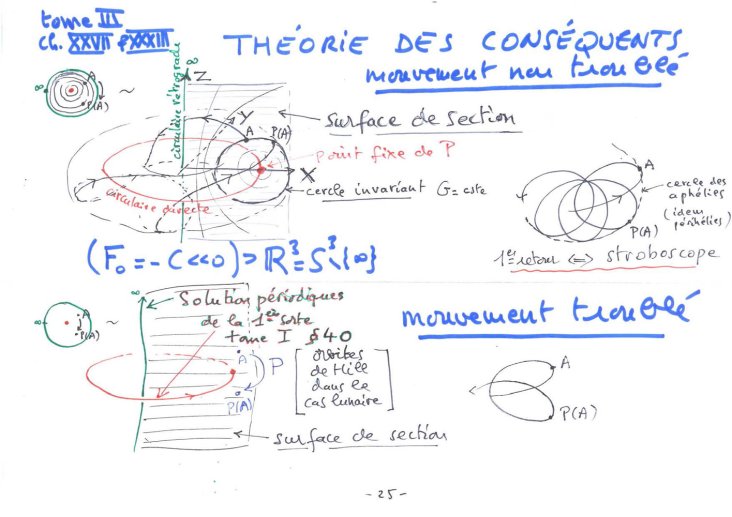 tome III
Ch. XXVII & XXXIII
THÉORIE DES CONSÉQUENTS
mouvement non troublé
∞ A P(A) ~
circulaire rétrograde
∞
Z
Y
A
P(A)
X
surface de section
point fixe de P
cercle invariant G = cste
circulaire directe
A
P(A)
cercle des
aphélies
(idem
périhélies)
1er retour ⟺ stroboscope
(F₀ = -C << 0) > ℝ³ = S³\{∞}
∞ A P(A) ~
∞
Solution périodiques
de la 1ère sorte
tome I §40
mouvement troublé
A
P
P(A)
[orbites
de Hill
dans le
cas lunaire]
surface de section
A
P(A)
- 25 -